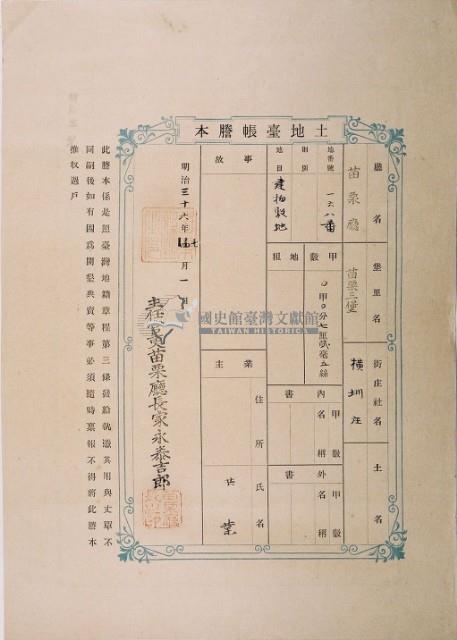 土地臺帳謄本
廳名
苗栗廳
堡里名
苗栗三堡
街庄社名
橫圳庄
土名
地番號
一六八番
則別
地目
建物敷地
甲數
〇甲〇分七厘貳毫五絲
地租
內書
甲數
名稱
外書
甲數
名稱
事故
業主
住所
氏名
業
明治三十六年七月一日
苗栗廳長家永泰吉郎
此謄本係是照臺灣地籍章程第三條發給執憑其用與丈單不
同嗣後如有因為開墾典賣等事必須隨時稟報不得將此謄本
推收過戶
國史館臺灣文獻館
TAIWAN HISTORICA